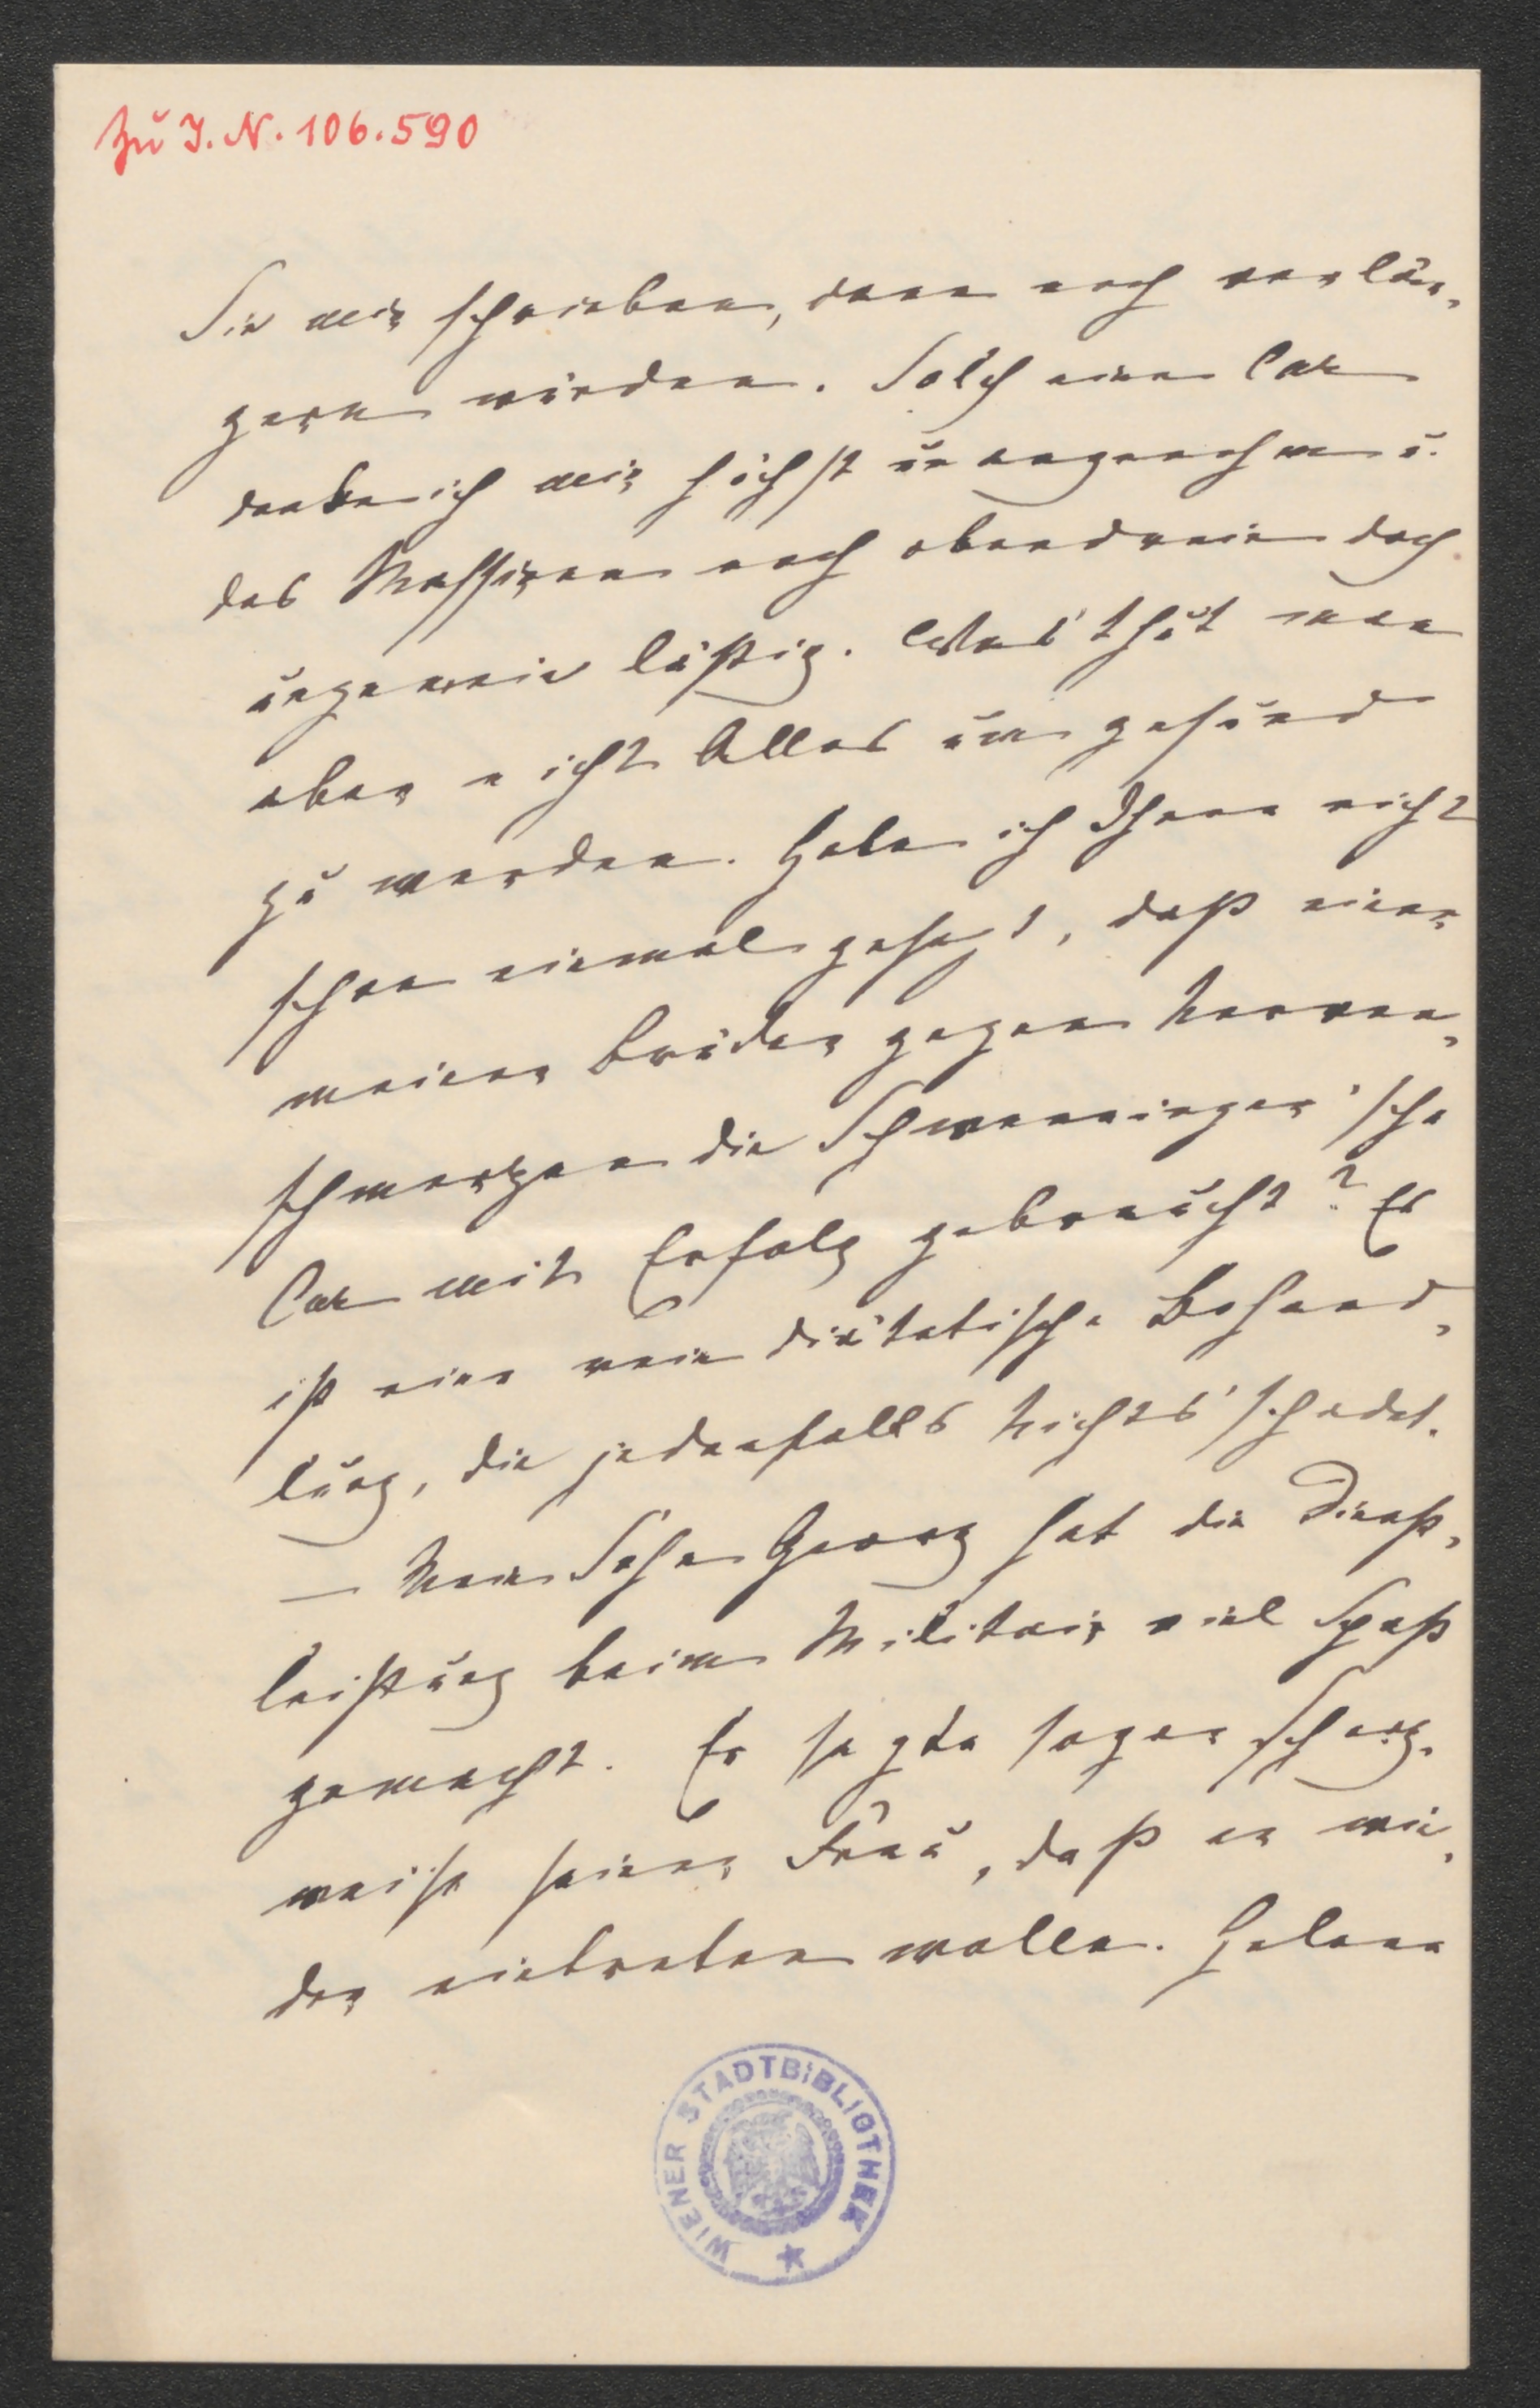 Zu I. N. 106.590
Sie mir schrieben, dann noch verlän-
gern würden. Solch eine Cur
denke ich mir höchst unangenehm u.
das Massiren noch obendrein doch
ungemein lästig. Was thut man
aber nicht Alles um gesund
zu werden. Habe ich Ihnen nicht
schon einmal gesagt, daß einer
meiner Brüder gegen Nerven-
schmerzen die Schwenninger'sche
Cur mit Erfolg gebraucht? Es
ist eine rein diätetische Behand-
lung, die jedenfalls Nichts schadet.
— Mein Sohn Georg hat die Dienst-
leistung beim Militair viel Spaß
gemacht. Er sagte sogar scherz-
weise seiner Frau, daß er wie-
der eintreten wolle. Helene
WIENER STADTBIBLIOTHEK